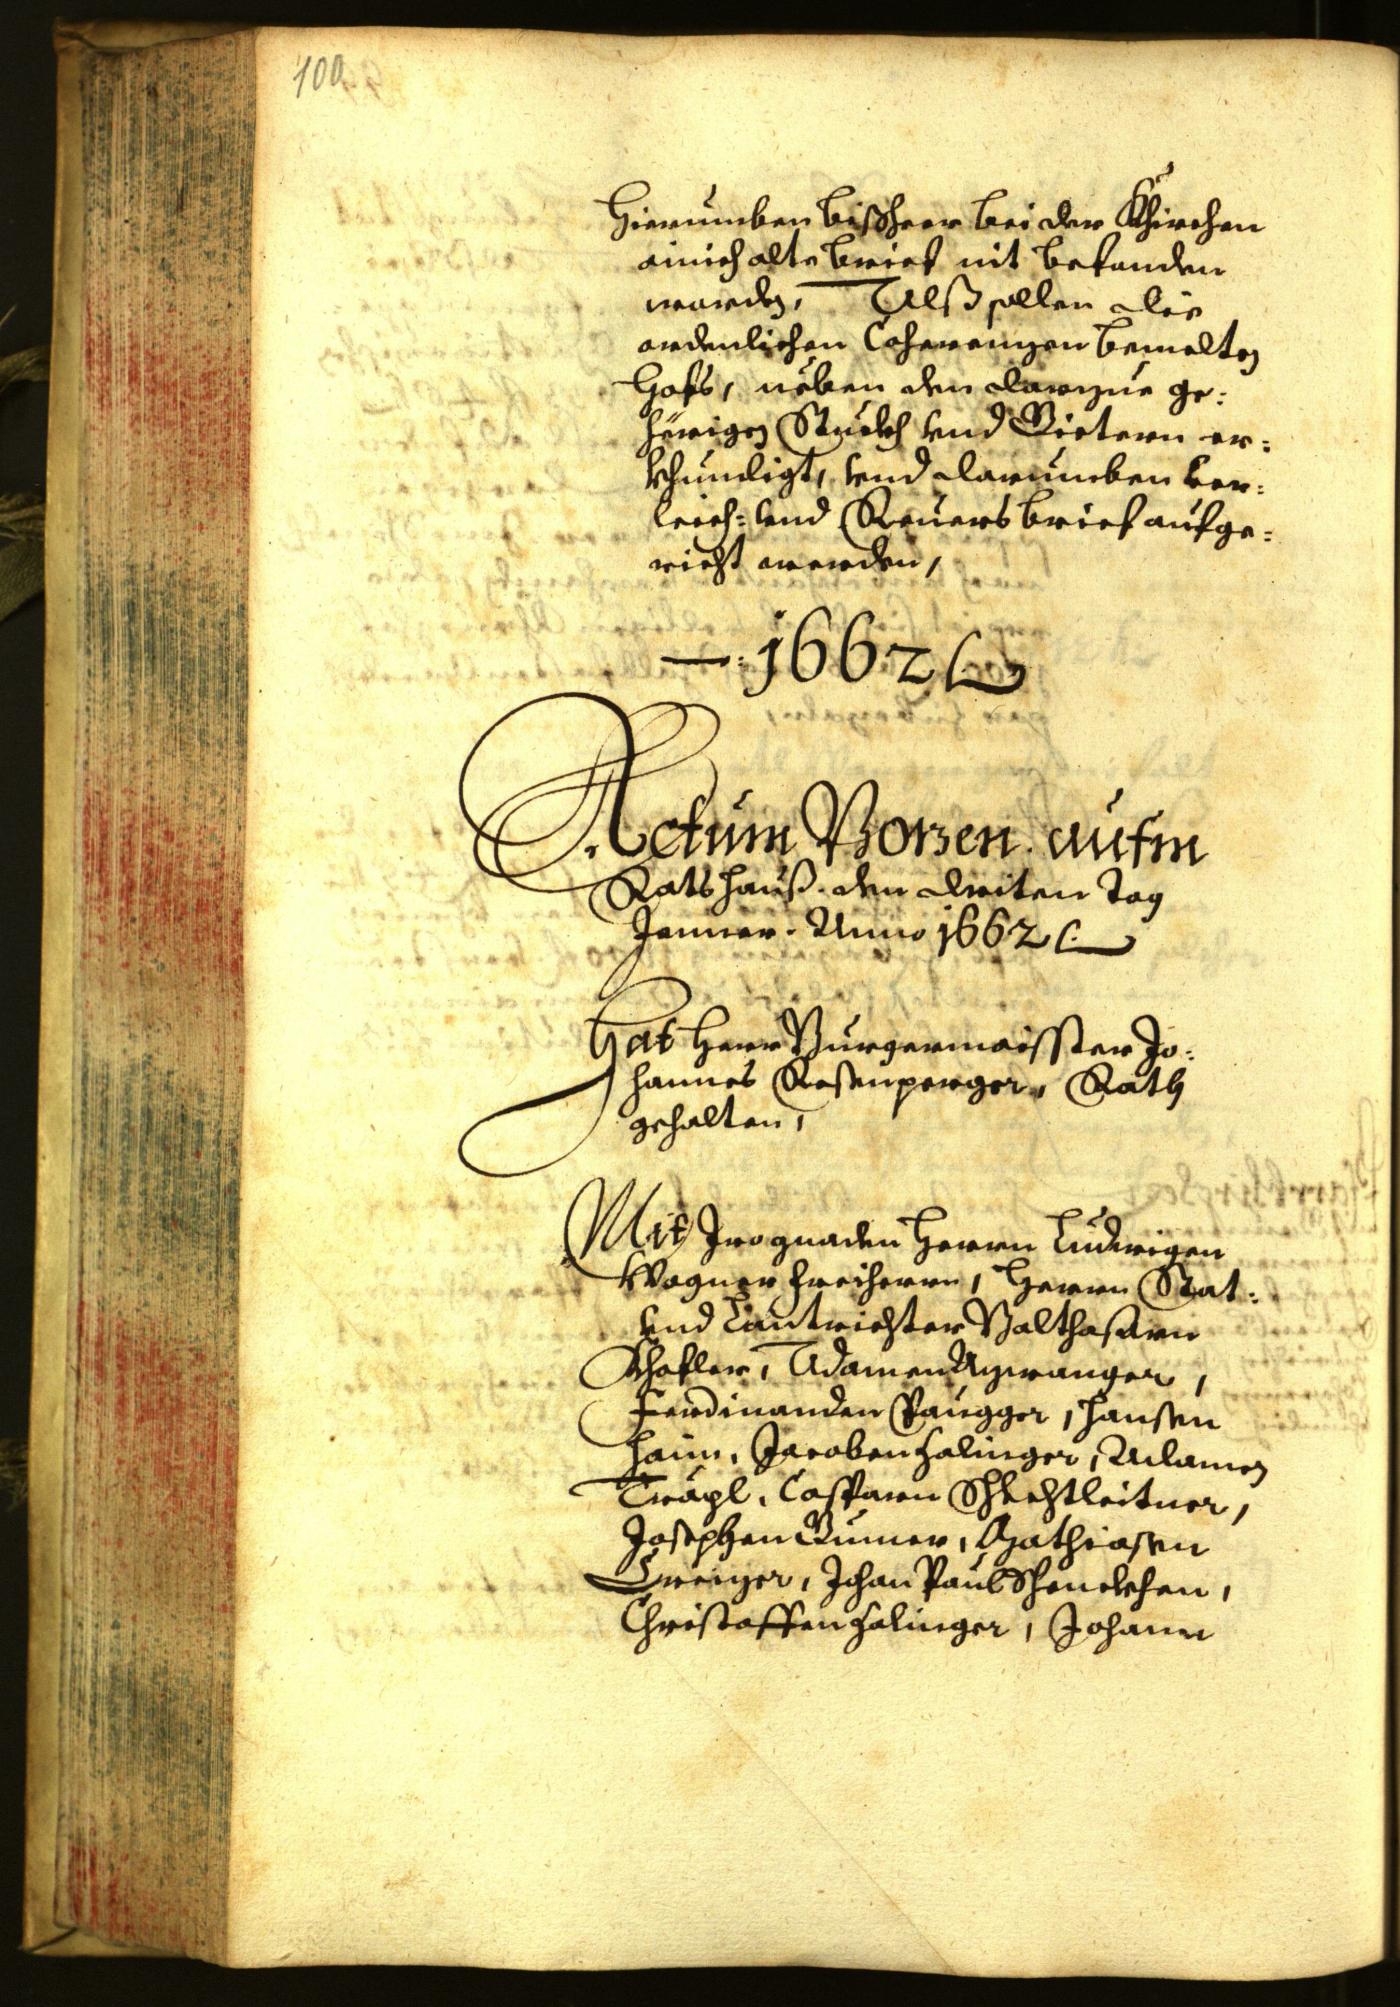 100
Hierumben bißheer bei der Khirchen
ainich alte brief nit befunden
worden, Alß sollen die
ordenlichen Coherenzen bemelten
Hofs, neben den darzue ge:
hörigen Stuckh vnd Gietern er:
khundigt, vnd darumben ver:
leich: vnd Reuersbrief aufge:
richt werden,
1662
Actum Bozen. aufm
Ratshauß. den driten Tag
Jenner. Anno 1662
Hat Herr Burgermaister Jo:
hannes Rosenperger, Rath
gehalten,
Mit Iro gnaden Herrn Ludwigen
Wagner Freiherrn, Herrn Stat:
vnd Lantrichter Balthasarn
Khofler, Adamen Azwanger,
Ferdinanden Paugger, Hansen
Haim, Jacoben Halinger, Adamen
Träpl, Casparn Schlechtleitner,
Josephen Gumer, Mathiasen
Greizer, Johan Paul Schenckhen,
Christoffen Halinger, Johann